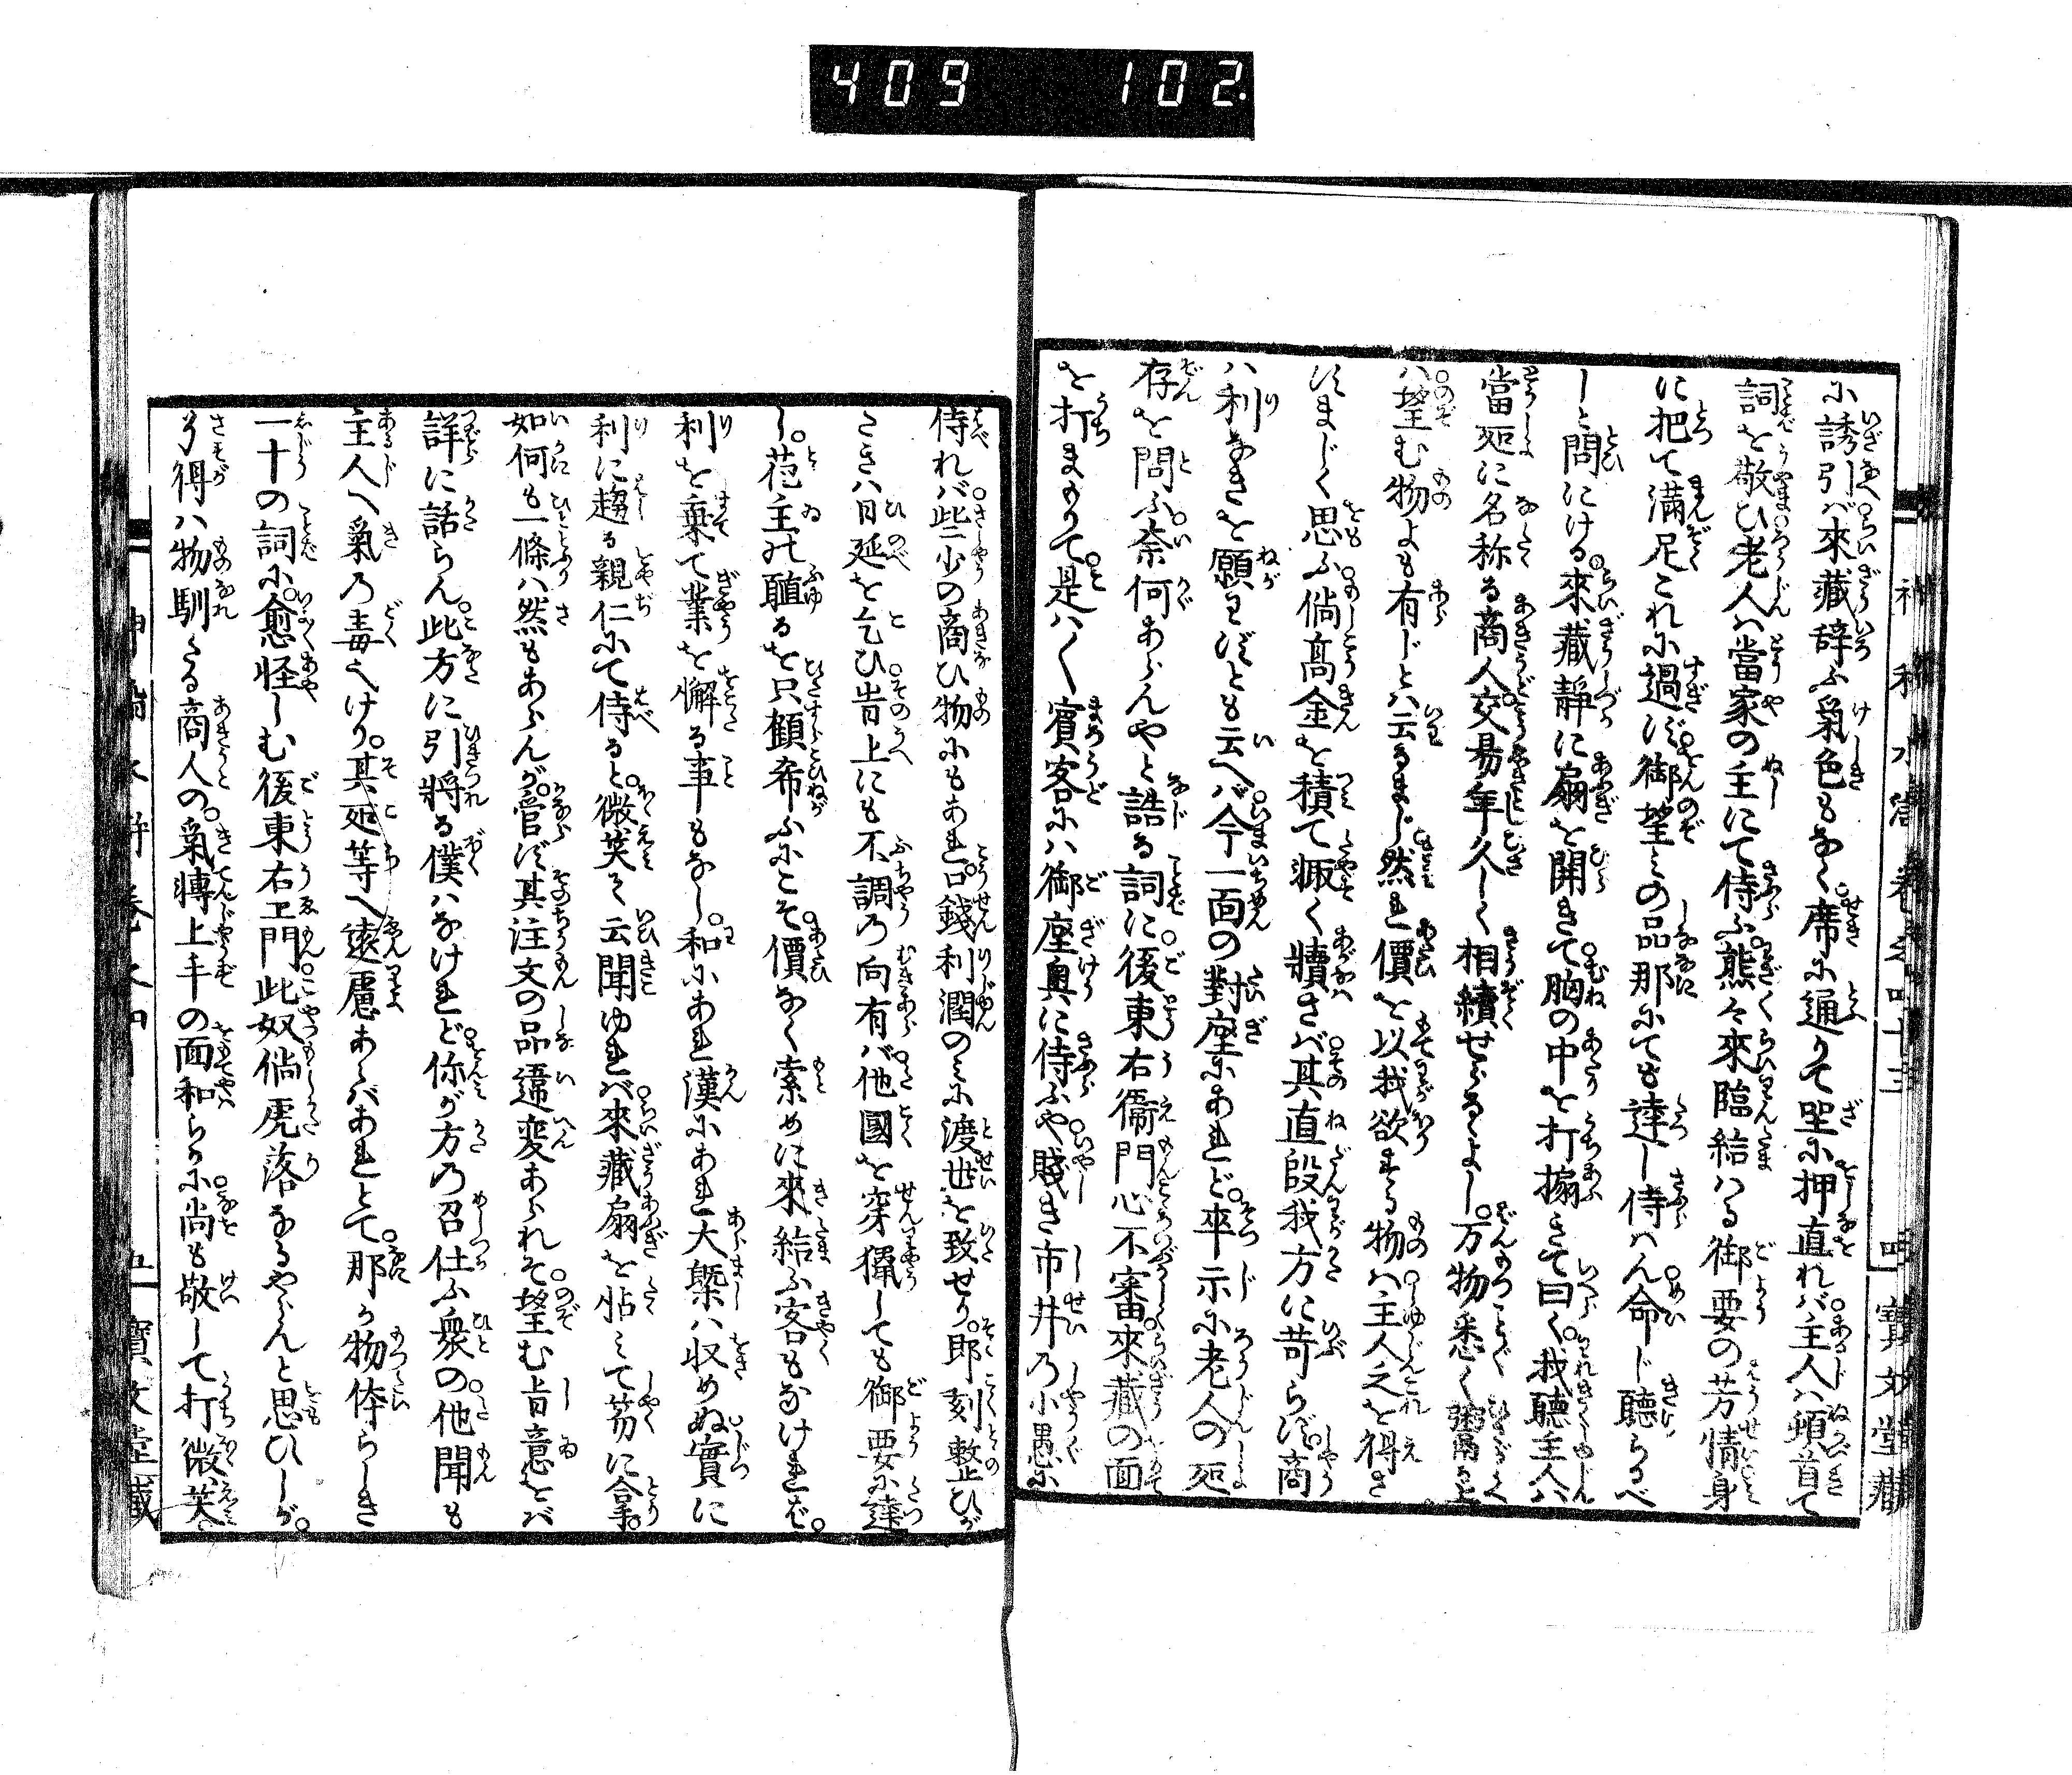 409 102
に誘引バ來藏辞ふ氣色もなく席に通りて坐に押直れバ主人ハ頓首て
詞を敬ひ老人ハ當家の主にて侍ふ熊々來臨給ハる御要の芳情身
に把て満足これに過ず御望ミの品那にても達し侍ハん命じ聴らるべ
しと問にける來藏靜に扇を開きて胸の中を打搧きて曰く我聴主人ハ
當処に名称る商人交易年久しく相續せらるよし万物悉く鬻る上
ハ望む物よも有じとハ云るまじ然れ價を以我欲する物ハ主人之を得さ
すまじく思ふ倘高金を積て輙く贖さバ其直段我方に苛らず商
ハ利なきを願ハずとも云へバ今一面の對座にあれど卒示に老人の処
存を問ふ奈何あらんやと誥る詞に後東右衞門心不審來藏の面
を打まもりて是ハ〱賓客にハ御座奥に侍ふや賤き市井の小愚に
侍れバ些少の商ひ物にもあれ口錢利潤のミに渡世を致せり即刻整ひが
たきハ日延を乞ひ旹上にも不調の向有バ他國を穿獵しても御要に達
し范主の齇るを只顧希ふにこそ價なく索めに來給ふ客もなけれど
利を棄て業を懈る事もなし和にあれ漢にあれ大槩ハ収めぬ實に
利に趨る親仁にて侍ると微笑て云聞ゆれバ來藏扇を帖ミて笏に拿
如何も一條ハ然もあらんが管ず其注文の品違変あられそ望む旨意をバ
詳に話らん此方に引將る僕ハなけれど你が方の召仕ふ衆の他聞も
主人へ氣の毒をけり其処等へ遠慮あらバあれとて那か物体らしき
一十の詞に愈怪しむ後東右ヱ門此奴倘虎落なるやらんと思ひしが
得ハ物馴たる商人の氣轉上手の面和らかに尚も敬して打微笑
五 寶文堂藏
寶文堂藏